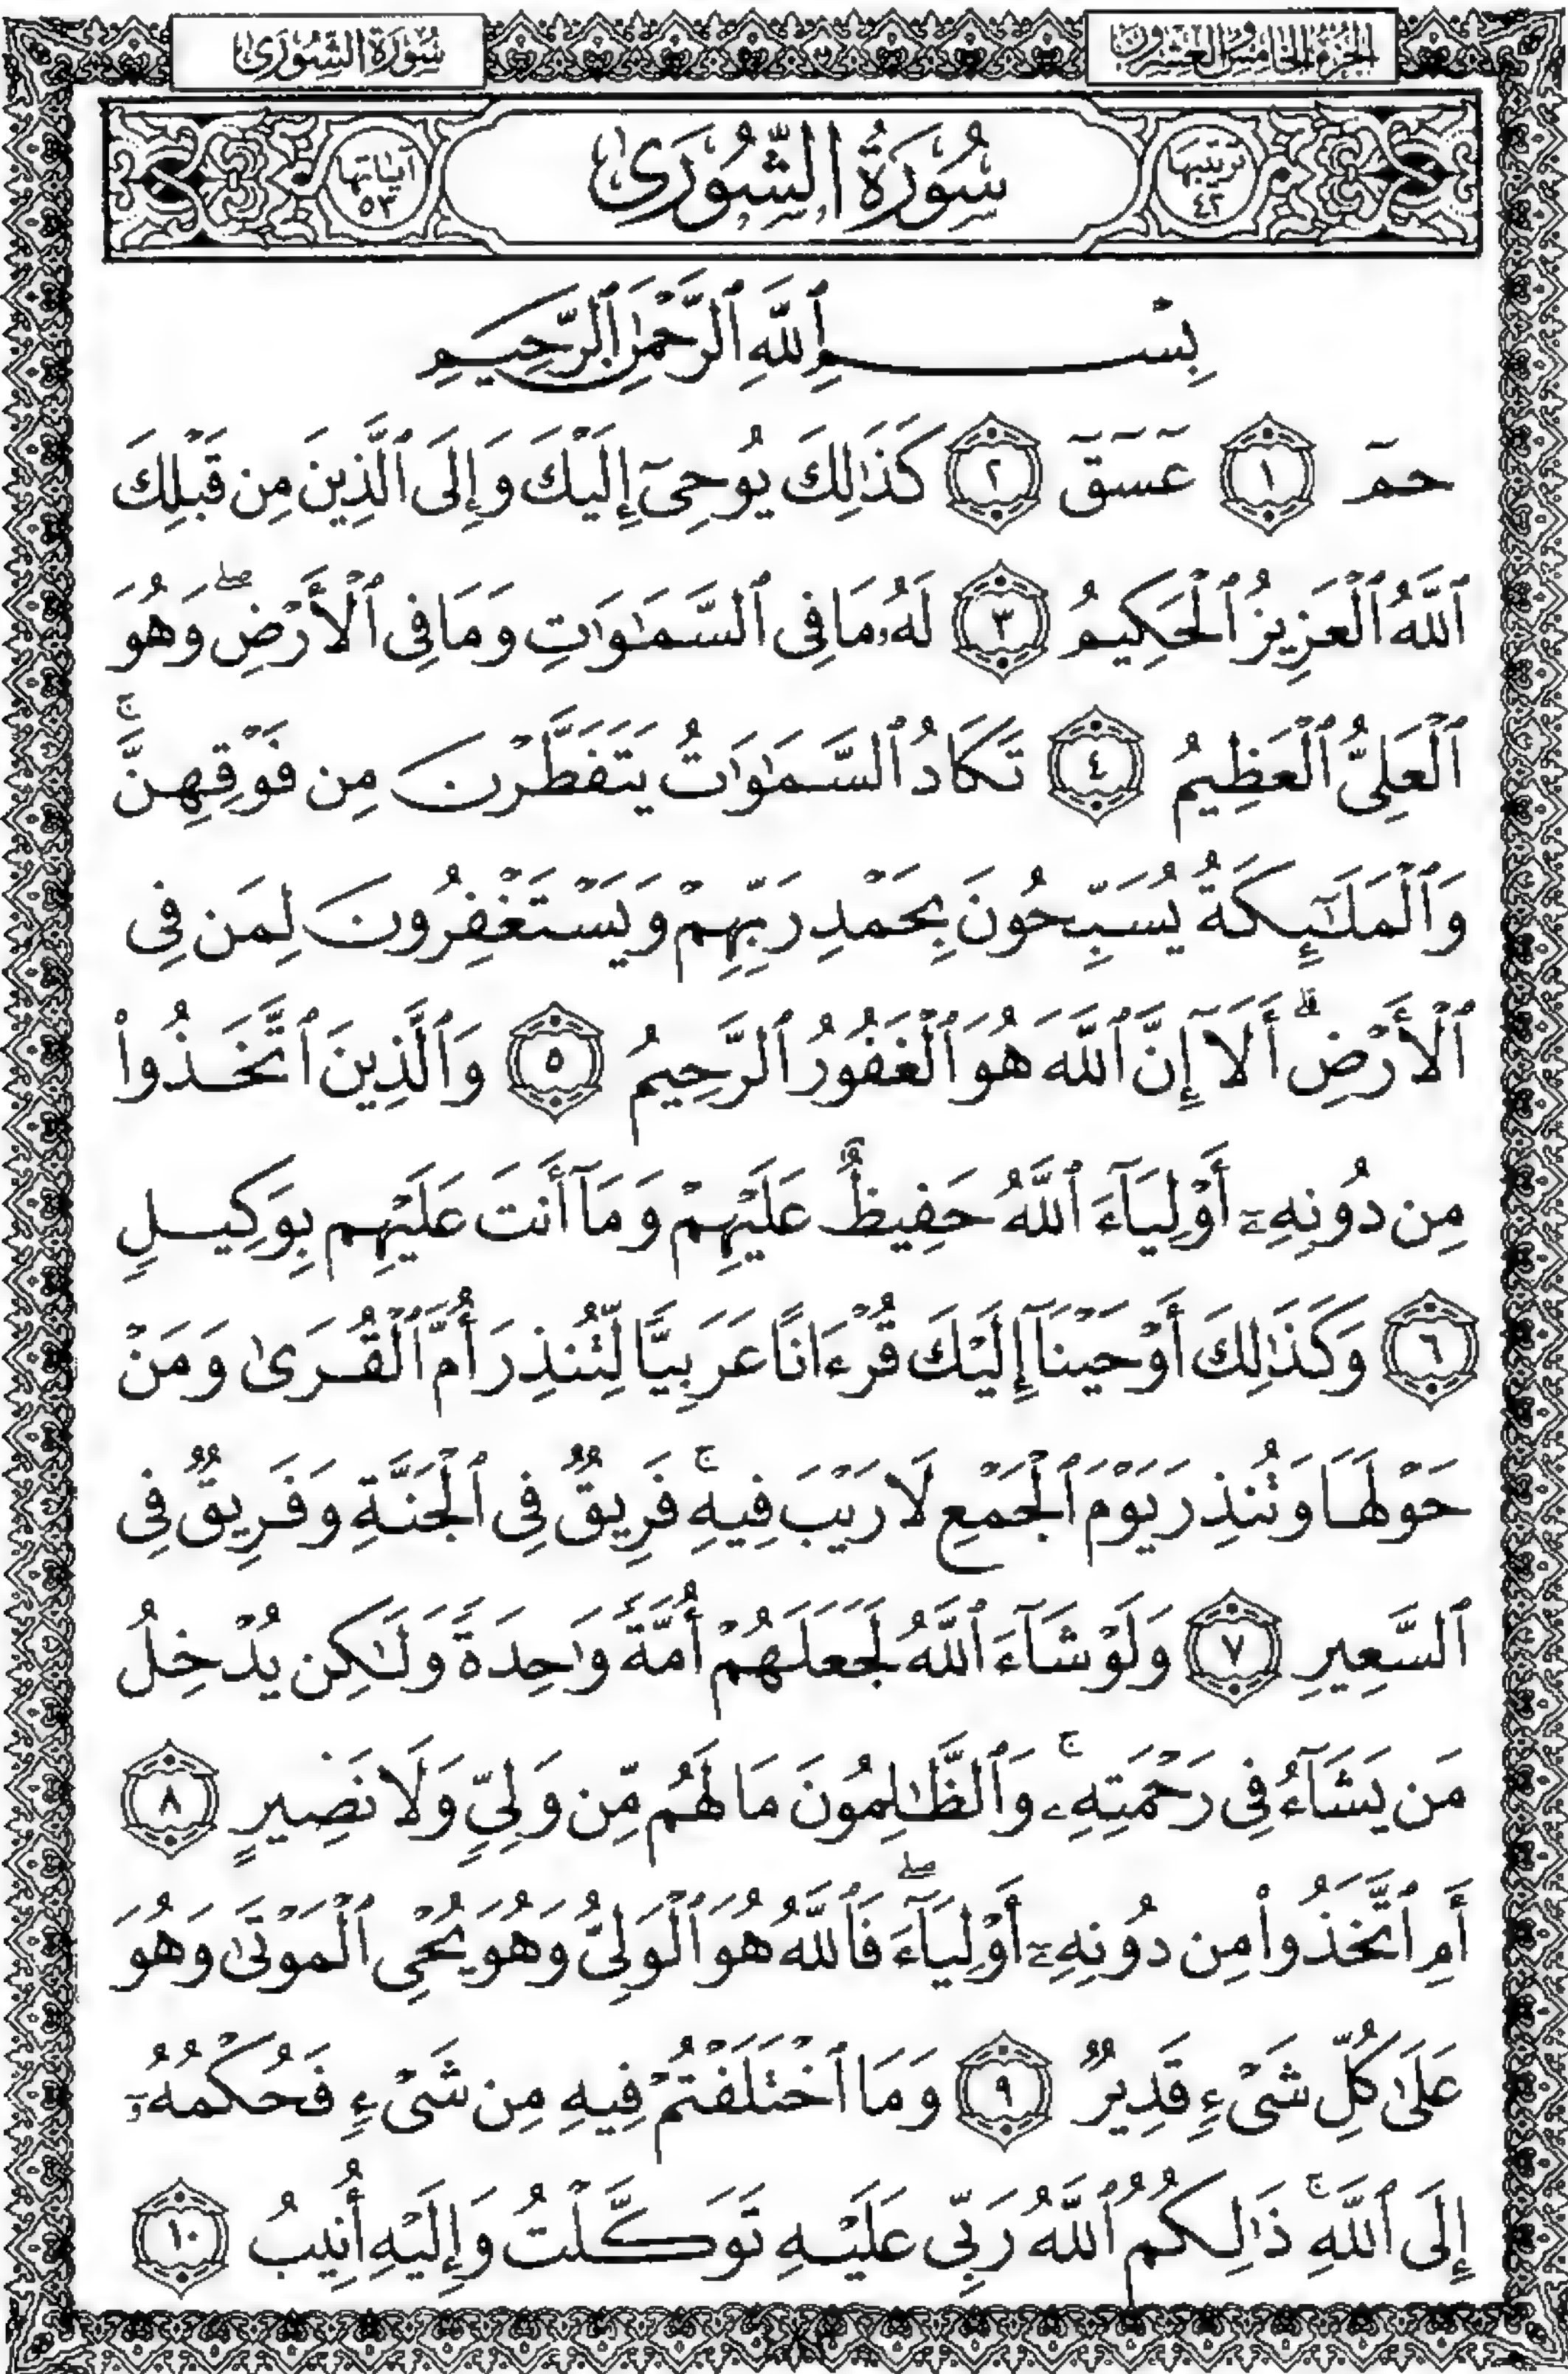 سُورَةُ الشُّورَىٰ
الجُزءُ الخَامِسُ وَالعِشْرُونَ
ترتيبها ٤٢
سُورَةُ الشُّورَىٰ
آياتها ٥٣
بِسْمِ ٱللَّهِ ٱلرَّحْمَٰنِ ٱلرَّحِيمِ
حمٓ ١ عٓسٓقٓ ٢ كَذَٰلِكَ يُوحِىٓ إِلَيْكَ وَإِلَى ٱلَّذِينَ مِن قَبْلِكَ
ٱللَّهُ ٱلْعَزِيزُ ٱلْحَكِيمُ ٣ لَهُۥ مَا فِى ٱلسَّمَٰوَٰتِ وَمَا فِى ٱلْأَرْضِ ۖ وَهُوَ
ٱلْعَلِىُّ ٱلْعَظِيمُ ٤ تَكَادُ ٱلسَّمَٰوَٰتُ يَتَفَطَّرْنَ مِن فَوْقِهِنَّ ۚ
وَٱلْمَلَٰٓئِكَةُ يُسَبِّحُونَ بِحَمْدِ رَبِّهِمْ وَيَسْتَغْفِرُونَ لِمَن فِى
ٱلْأَرْضِ ۗ أَلَآ إِنَّ ٱللَّهَ هُوَ ٱلْغَفُورُ ٱلرَّحِيمُ ٥ وَٱلَّذِينَ ٱتَّخَذُوا۟
مِن دُونِهِۦٓ أَوْلِيَآءَ ٱللَّهُ حَفِيظٌ عَلَيْهِمْ وَمَآ أَنتَ عَلَيْهِم بِوَكِيلٍ
٦ وَكَذَٰلِكَ أَوْحَيْنَآ إِلَيْكَ قُرْءَانًا عَرَبِيًّا لِّتُنذِرَ أُمَّ ٱلْقُرَىٰ وَمَنْ
حَوْلَهَا وَتُنذِرَ يَوْمَ ٱلْجَمْعِ لَا رَيْبَ فِيهِ ۚ فَرِيقٌ فِى ٱلْجَنَّةِ وَفَرِيقٌ فِى
ٱلسَّعِيرِ ٧ وَلَوْ شَآءَ ٱللَّهُ لَجَعَلَهُمْ أُمَّةً وَٰحِدَةً وَلَٰكِن يُدْخِلُ
مَن يَشَآءُ فِى رَحْمَتِهِۦ ۚ وَٱلظَّٰلِمُونَ مَا لَهُم مِّن وَلِىٍّ وَلَا نَصِيرٍ ٨
أَمِ ٱتَّخَذُوا۟ مِن دُونِهِۦٓ أَوْلِيَآءَ ۖ فَٱللَّهُ هُوَ ٱلْوَلِىُّ وَهُوَ يُحْىِ ٱلْمَوْتَىٰ وَهُوَ
عَلَىٰ كُلِّ شَىْءٍ قَدِيرٌ ٩ وَمَا ٱخْتَلَفْتُمْ فِيهِ مِن شَىْءٍ فَحُكْمُهُۥٓ
إِلَى ٱللَّهِ ۚ ذَٰلِكُمُ ٱللَّهُ رَبِّى عَلَيْهِ تَوَكَّلْتُ وَإِلَيْهِ أُنِيبُ ١٠